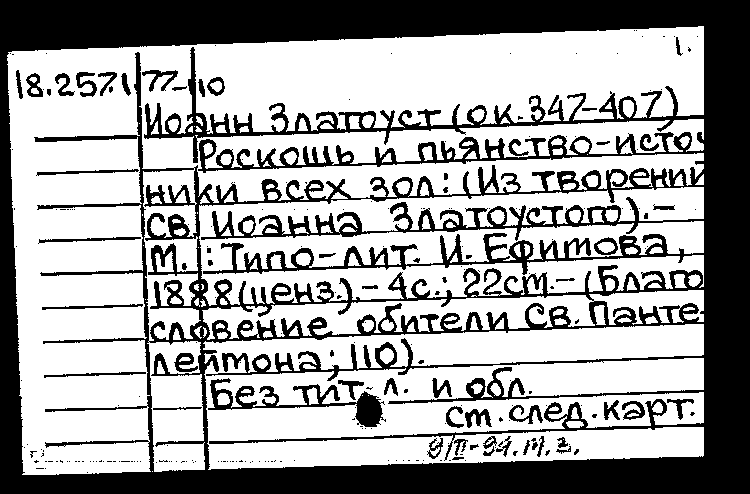 1.
18.257.1.77-110
Иоанн Златоуст (ок.347-407)
Роскошь и пьянство-источ
ники всех зол: (Из творений
св. Иоанна Златоустого).-
М.: Типо-лит. И. Ефимова,
1888(ценз.).- 4с.; 22см.- (Благо
словение обители Св. Панте-
леймона; 110).
Без тит. л. и обл.
См. след. карт.
9/II-94. М.З.